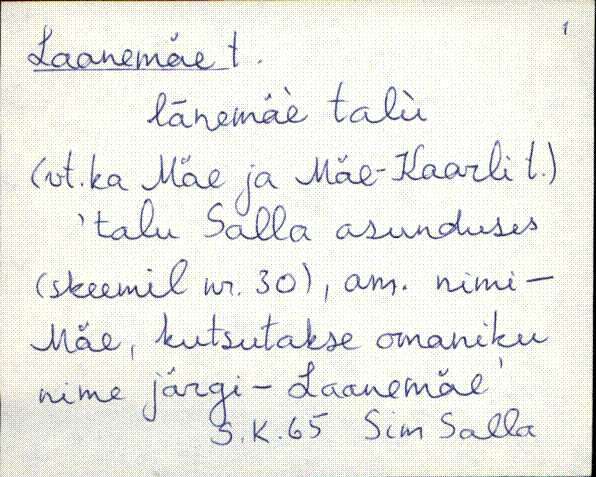 1
Laanemäe t.
lānemäè talù
(vt. ka Mäe ja Mäe-Kaarli t.)
'talu Salla asunduses
(skeemil nr. 30), am. nimi -
Mäe, kutsutakse omaniku
nime järgi - Laanemäe'
S.K. 65 Sim Salla